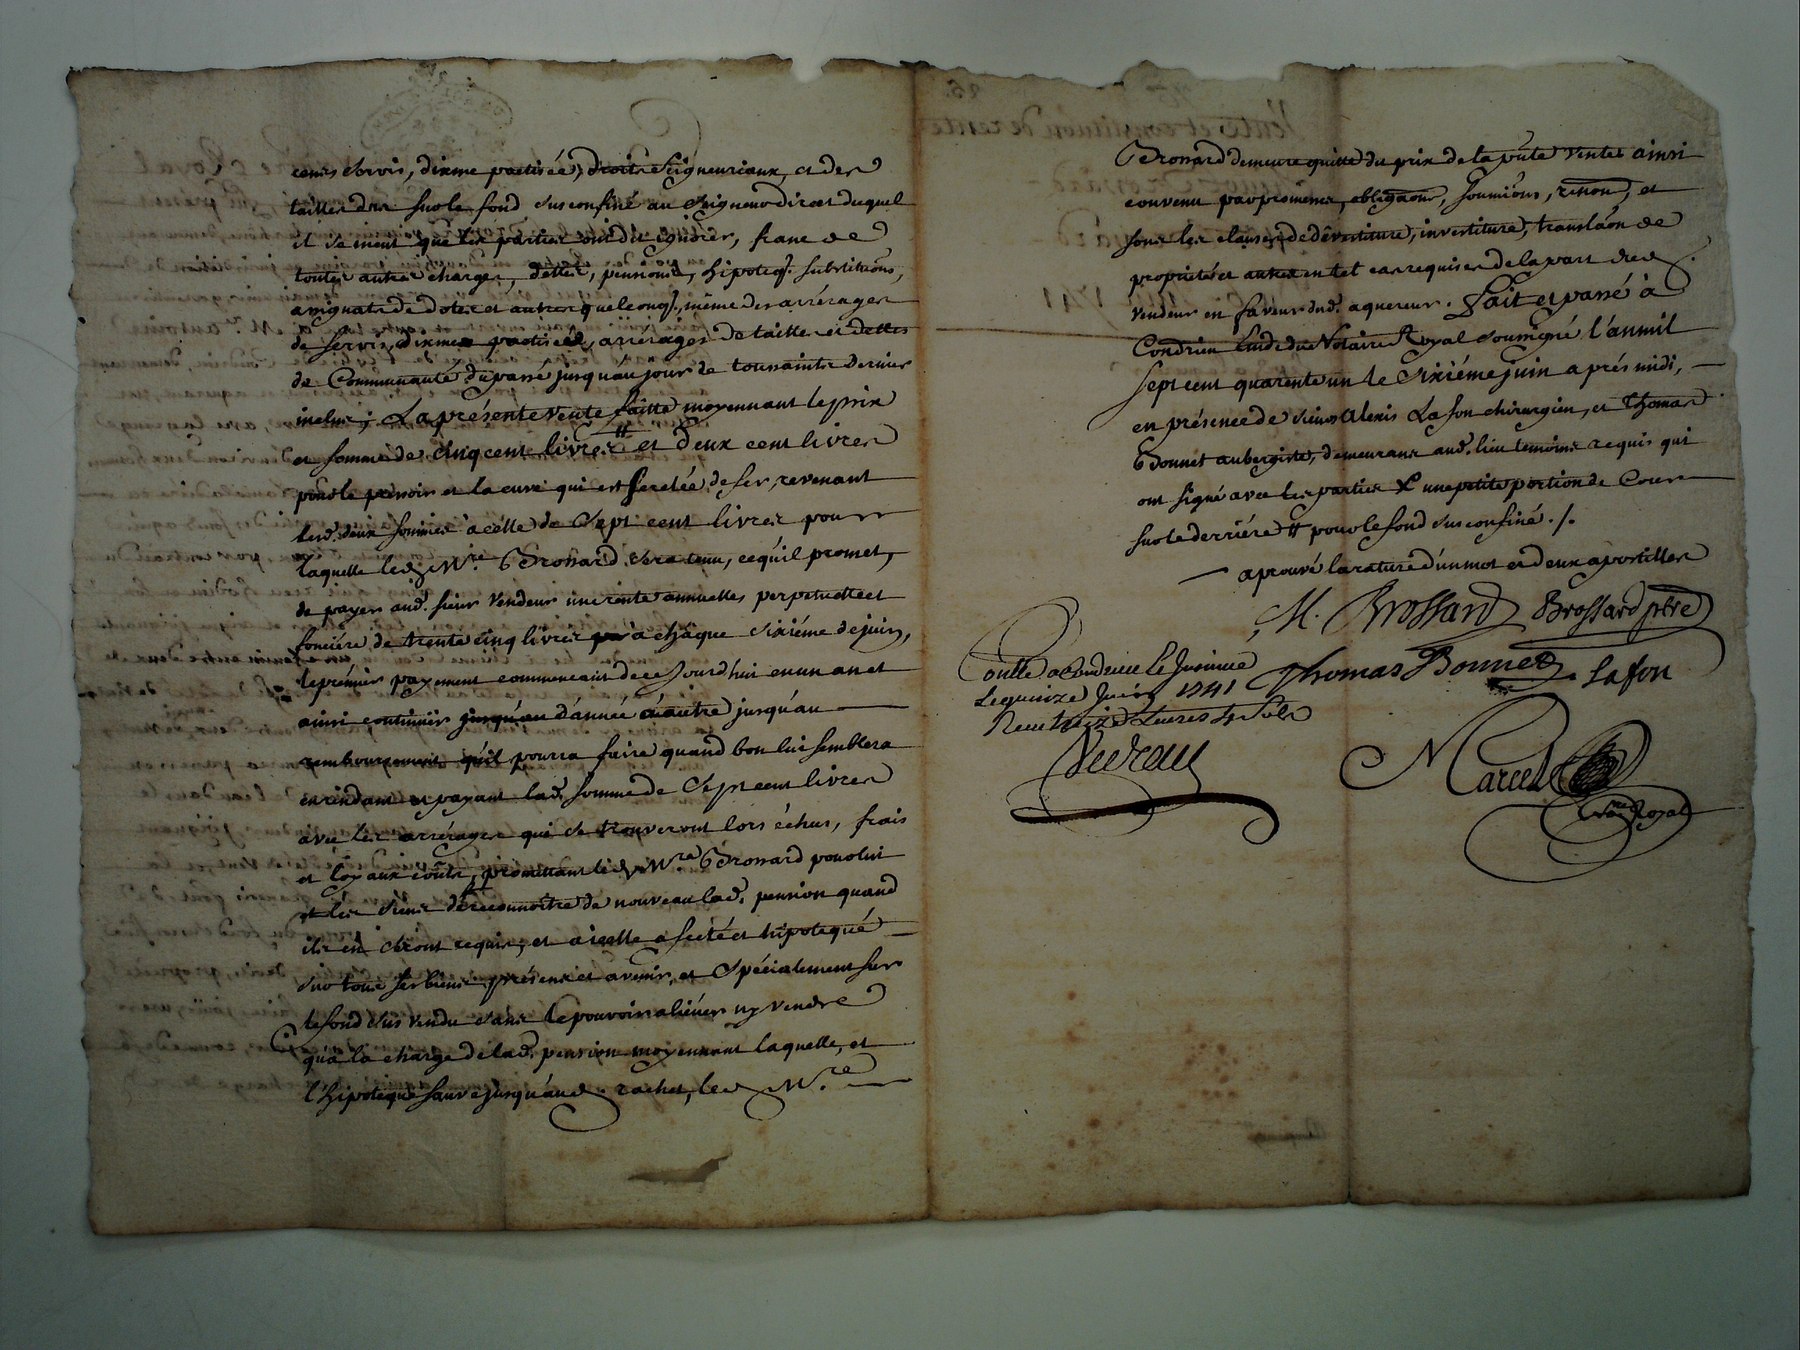 cens servis, dixme partisée, droits seigneuriaux, et des
tailles dus sur le fond sus confiné au seigneur direct duquel
il se meut que les parties ont dit ignorer, franc de
toutes autres charges, dettes, pensions, hipoteq. substitutions,
assignats de dotes et autres quelconq., même des arrérages
de servis, dixmes partisée, arrérages de taille et dettes
de Communauté du passé jusqu'au jour de toussaints dernier
inclus; La présente vente faitte moyennant le prix
et somme de cinq cent livres # et deux cent livres
pour le pressoir et la cuve qui est serclée de fer, revenant
lesd. deux sommes à celle de Sept cent livres pour
laquelle led. Mre Brossard sera tenu, ce qu'il promet,
de payer aud. sieur vendeur une rente annuelle perpetuelle et
fonciére de trente cinq livres à châque sixiéme de juin,
le prémier payement commencant de ce jourd'hui en un an et
ainsi continuer d'année à autre jusqu'au
remboursement qu'il pourra faire quand bon lui semblera
en rendant et payant lad. somme de Sept cent livres
avec les arrérages qui se trouveront lors échus, frais
et loyaux coûts, promettant led. Mre Brossard pour lui
et les siens de reconnoitre de nouveau lad. pension quand
ils en seront requis, et à icelle afecté et hipotequé
sur tous ses biens présens et avenir, et Spécialement sur
le fond sus vendu sans le pouvoir aliéner ny vendre
qu'à la charge de lad. pension moyennant laquelle, et
l'hipoteque sauve jusqu'aud. rachet, led. Mre
Brossard demeure quitte du prix de la pñte vente ainsi
convenu par promesses, obligãons, soumiõns, renon., et
sous les clauses de dévestiture, investiture, translãon de
proprieté et autres en tel cas requises de la part dud.
vendeur en faveur dud. aquereur. Fait et passé à
Condrieu Etude du Notaire Royal soussigné l'an mil
sept cent quarente un le sixiéme juin aprés midi,
en présence de sieurs Alexis Lafon chirurgien, et Thomas
Bonnet aubergiste, demeurans aud. lieu temoins requis qui
ont signé avec les parties X une petite portion de Cour
sur le derriére # pour le fond sus confiné./.
aprouvé la rature d'un mot et deux apostilles
M. Brossard Brossard pbre
Thomas Bonnet Lafon
Conllé a Condrieu Et Insinué
Le quinze Juin 1741
Receu treize Livres 4 sols
Marcel
Nre Royal